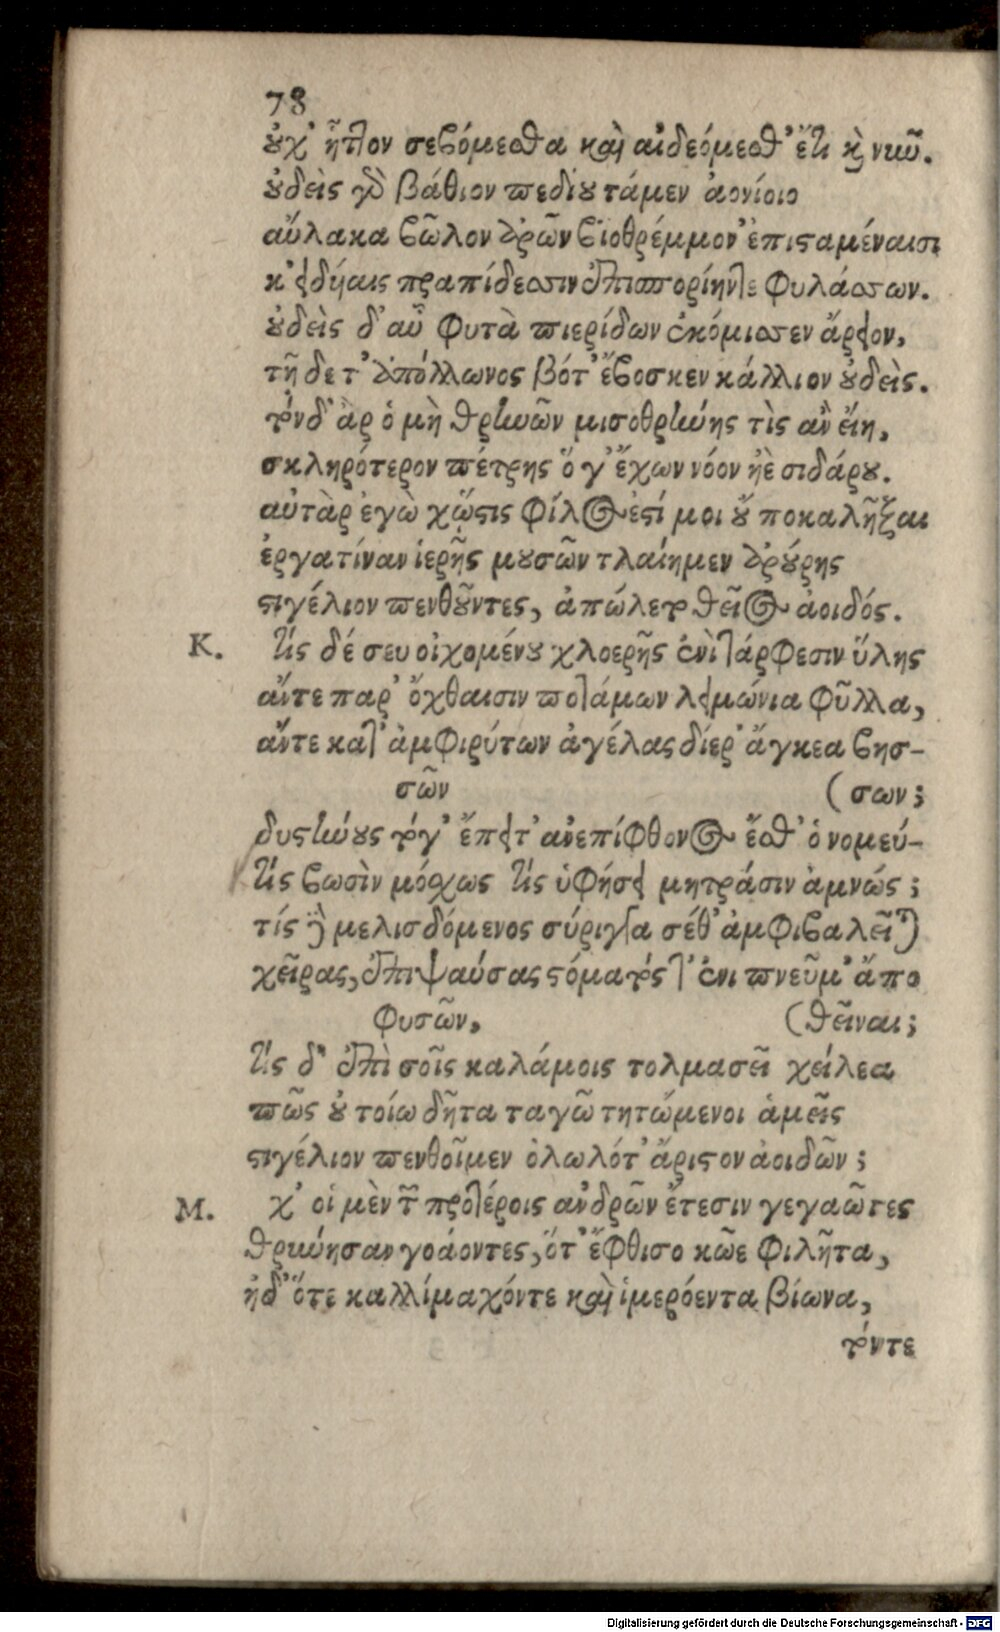 78
οὐχ' ἧττον σεβόμεσθα καὶ αἰδεόμεσθ' ἔτι καὶ νιῦ.
οὐδεὶς γὰρ βάθιον πεδίου τάμεν ἀονίοιο
αὔλακα βῶλον δρῶν βιοθρέμμον' ἐπισαμέναισι
κ' εἰδήαις πραπίδεσσιν ἐπισπορίην τε φυλάσσων.
οὐδεὶς δ' αὖ φυτὰ πιερίδων ἐκόμισσεν ἄρειον,
τῇ δε τ' ἀπόλλωνος βότ' ἔβοσκεν κάλλιον οὐδεὶς.
τόνδ' ἂρ ὁ μὴ θρηνῶν μισοθρήνης τὶς ἂν εἴη,
σκληρότερον πέτρης ὅ γ' ἔχων νόον ἠὲ σιδάρου.
αὐτὰρ ἐγὼ χᾥστις φίλος ἐστί μοι οὔ ποκα λῆξαι
ἐργατίναν ἱερῆς μουσῶν τλαίημεν ἀρούρης
στιγέλιον πενθοῦντες, ἀπώλετο θεῖος ἀοιδός.
K. τίς δέ σευ οἰχομένου χλοερῆς ἐνὶ τάρφεσιν ὕλης
αἵτε παρ' ὄχθαισιν ποτάμων λειμώνια φῦλλα,
ἅντε κατ' ἀμφιρύτων ἀγέλας δίερ' ἄγκεα βησ-
σῶν (σων;
δυστήνους τόγ' ἔπειτ' ἀνεπίφθονος ἔσθ' ὁ νομεύ-
τίς βωσὶν μόσχως τίς ὑφήσει μητράσιν ἀμνώς;
τίς δὲ μελισδόμενος σύριγγα σέθ' ἀμφιβαλεῖται
χεῖρας, ἐπιψαύσας στόμα τός τ' ἐνι πνεῦμ' ἄπο
φυσῶν, (θεῖναι;
τίς δ' ἐπὶ σοῖς καλάμοις τολμασεῖ χείλεα
πῶς οὐ τοίω δῆτα ταγῶ τητώμενοι ἁμεῖς
στιγέλιον πενθοῖμεν ὀλωλότ' ἄριστον ἀοιδῶν;
M. χ' οἱ μὲν τῶν προτέροις ἀνδρῶν ἔτεσιν γεγαῶτες
θρήνησαν γοάοντες, ὅτ' ἔφθισο κῶε φιλῆτα,
ἠδ' ὅτε καλλίμαχόντε καὶ ἱμερόεντα βίωνα,
τόντε
Digitalisierung gefördert durch die Deutsche Forschungsgemeinschaft - DFG